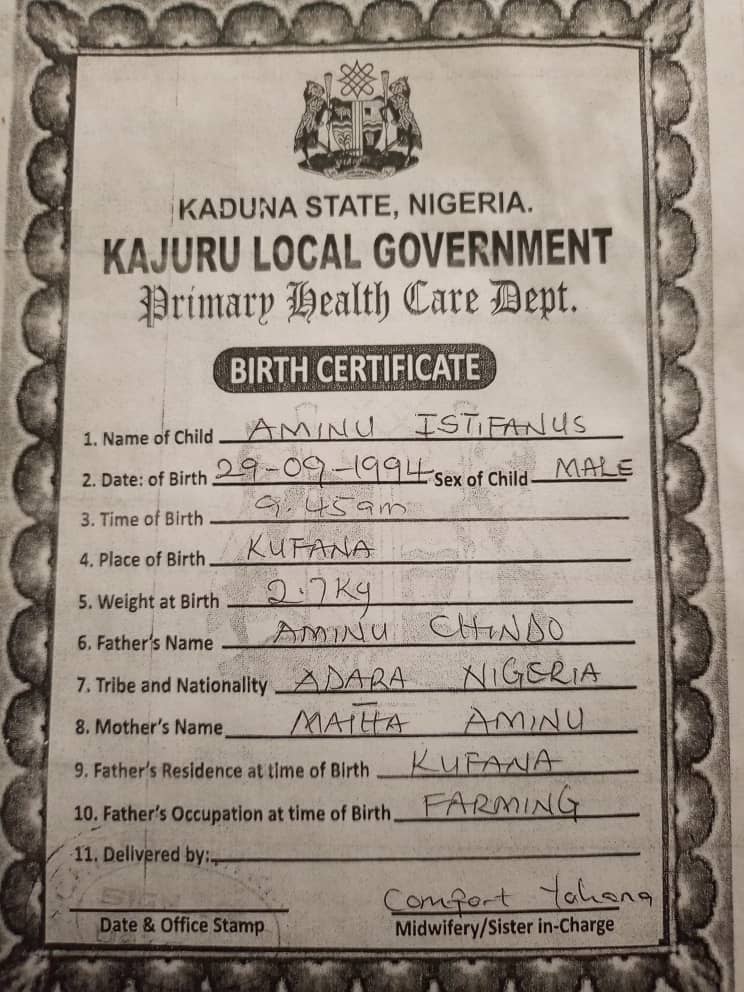 KADUNA STATE, NIGERIA.
KAJURU LOCAL GOVERNMENT
Primary Health Care Dept.
BIRTH CERTIFICATE
1. Name of Child AMINU ISTIFANUS
2. Date: of Birth 29-09-1994 Sex of Child MALE
3. Time of Birth 9.45am
4. Place of Birth KUFANA
5. Weight at Birth 2.7Kg
6. Father's Name AMINU CHINDO
7. Tribe and Nationality ADARA NIGERIA
8. Mother's Name AMINU
9. Father's Residence at time of Birth KUFANA
10. Father's Occupation at time of Birth FARMING
11. Delivered by:
SIGN
Comfort
Date & Office Stamp Midwifery/Sister in-Charge